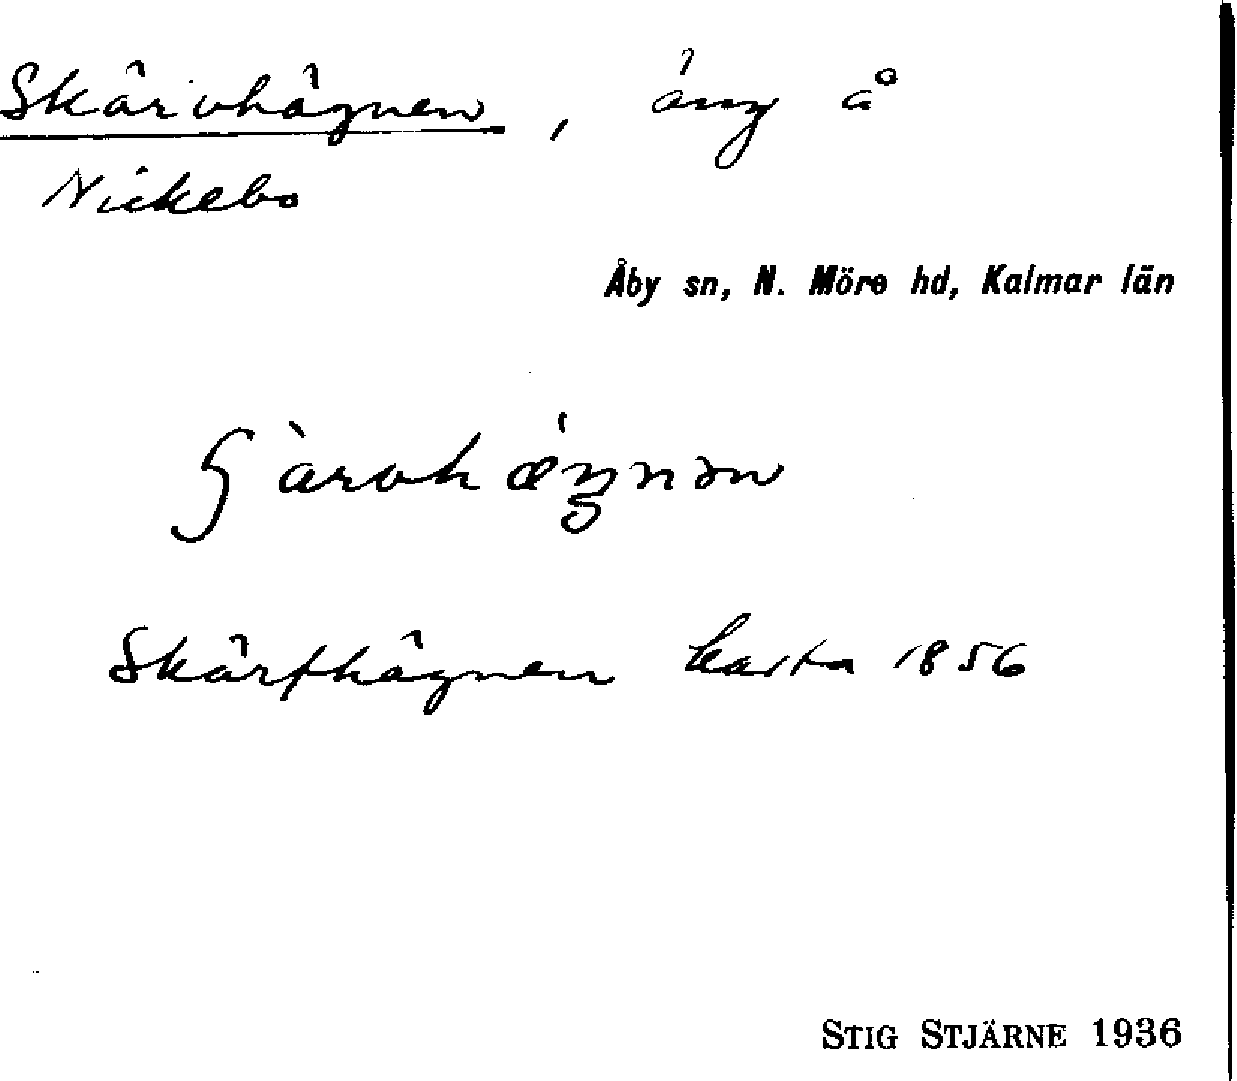 Skärvhägnen, äng å
Nickebo
Åby sn, N. Möre hd, Kalmar län
Skärfhägnen karta 1856
STIG STJÄRNE 1936